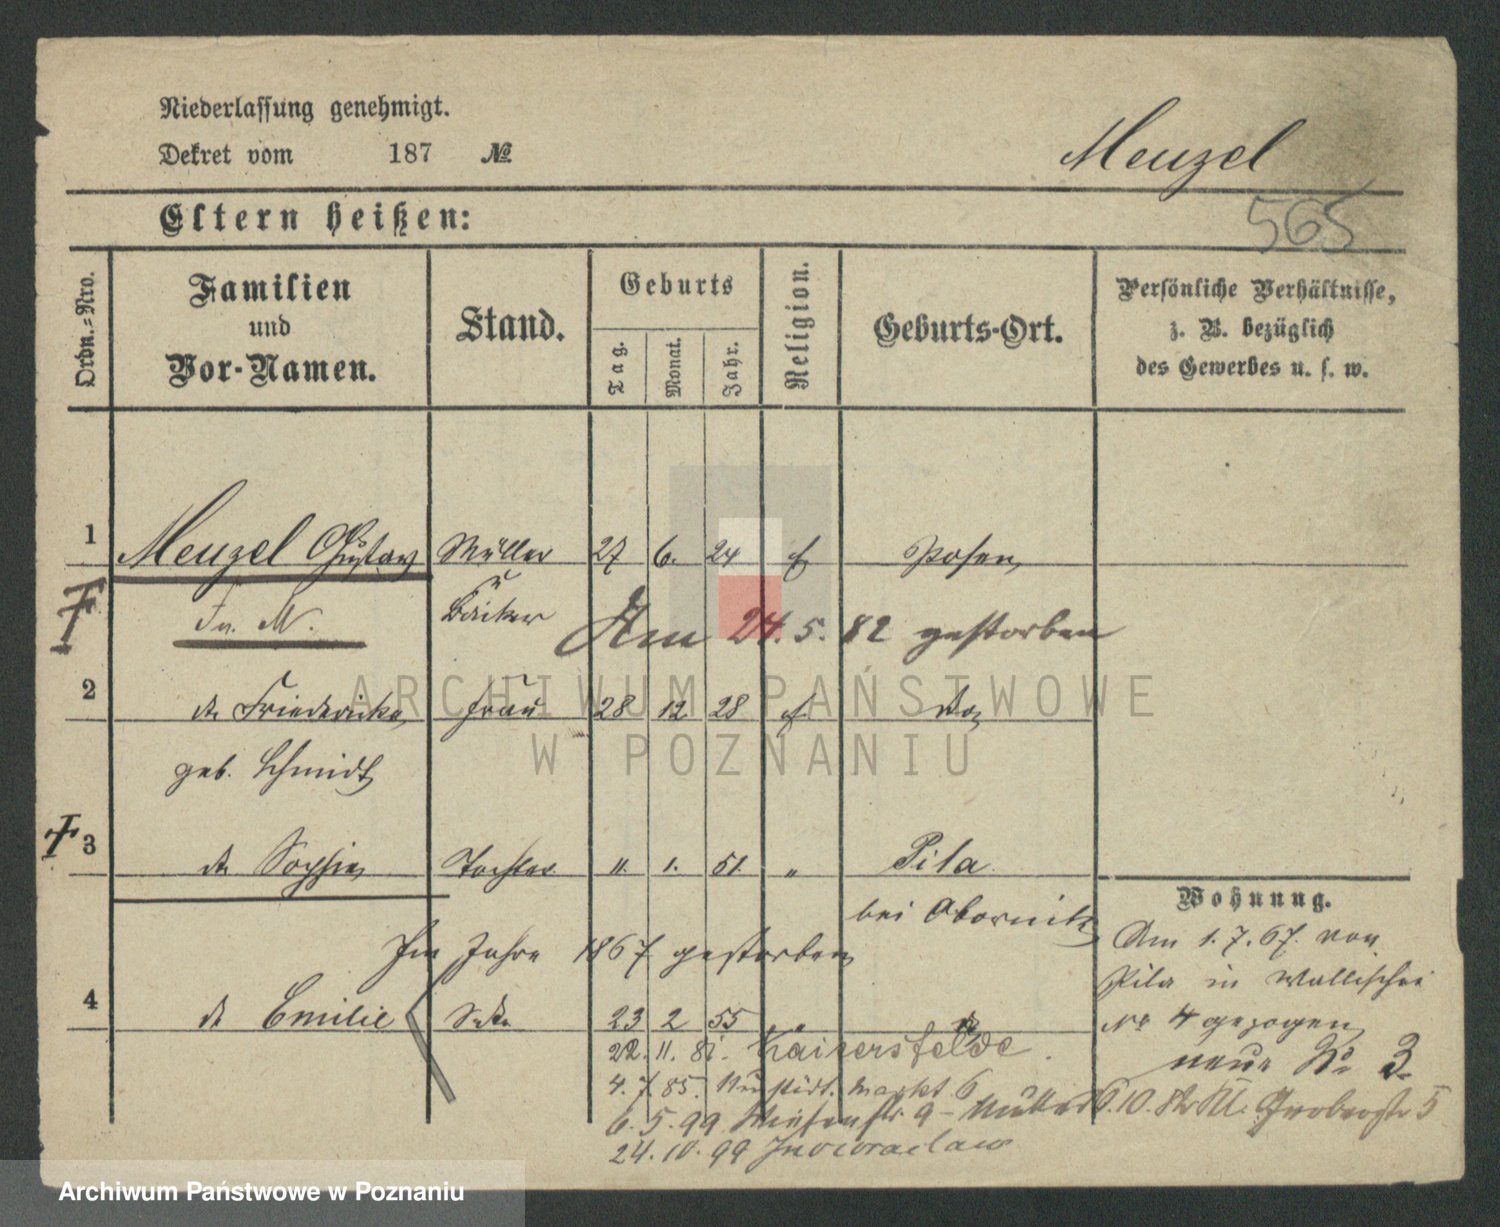 Niederlassung genehmigt.
Dekret vom 187 №
Menzel
Eltern heißen:
565
Ordn.-Nro.
Familien und Vor-Namen.
Stand.
Geburts
Tag.
Monat.
Jahr.
Religion.
Geburts-Ort.
Persönliche Verhältnisse, z. B. bezüglich des Gewerbes u. s. w.
1 Menzel Gustav Müller 27 6. 24 Posen
u Bäcker
Am 24. 5. 82 gestorben
2 Friedericke Frau 28 12 28 do
geb. Schmidt
3 Sophie Tochter 11. 1. 51. " Pila
bei Obornik
Im Jahre 1867 gestorben
4 Emilie 23 2 55 "
22. 11. 81. Kaisersfelde.
4. 7. 85. Neustädt. Markt 6
6. 5. 99 Wiesenstr. 9 - Mutter
24. 10. 99 Inowraclaw
Wohnung.
Am 1. 7. 67. von
Pila in Wallischei
No 4 gezogen
neue No 3
6. 10. 82 Kl. Gerberstr 5
ARCHIWUM PAŃSTWOWE
W POZNANIU
Archiwum Państwowe w Poznaniu